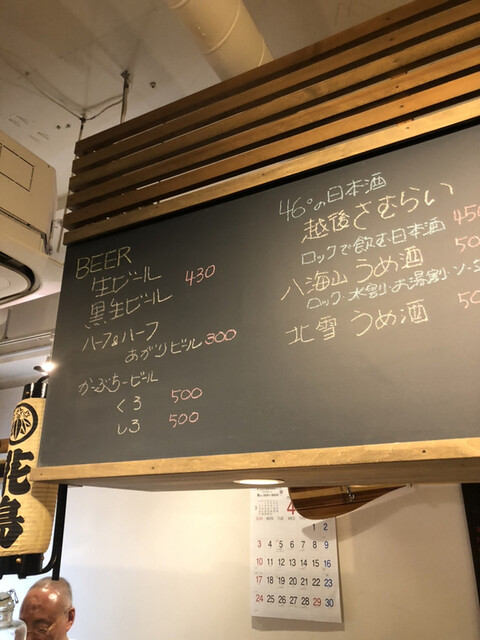 BEER
生ビール 430
黒生ビール
ハーフ&ハーフ
あがりビール 300
かーぶちービール
くろ 500
しろ 500
46°の日本酒
越後さむらい
ロックで飲む日本酒 450
八海山うめ酒 50
ロック・水割・お湯割・ソ
北雪 うめ酒 50
花鳥
4
1 2
3 4 5 6 7 8 9
10 11 12 13 14 15 16
17 18 19 20 21 22 23
24 25 26 27 28 29 30